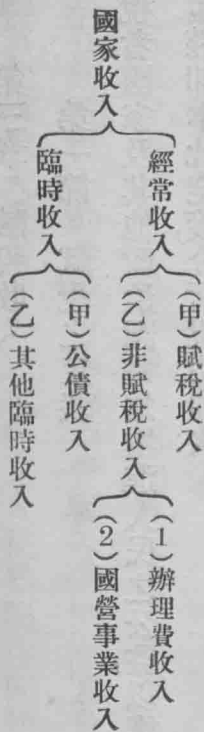 國家收入
經常收入
(甲)賦稅收入
(乙)非賦稅收入
(1)辦理費收入
(2)國營事業收入
臨時收入
(甲)公債收入
(乙)其他臨時收入